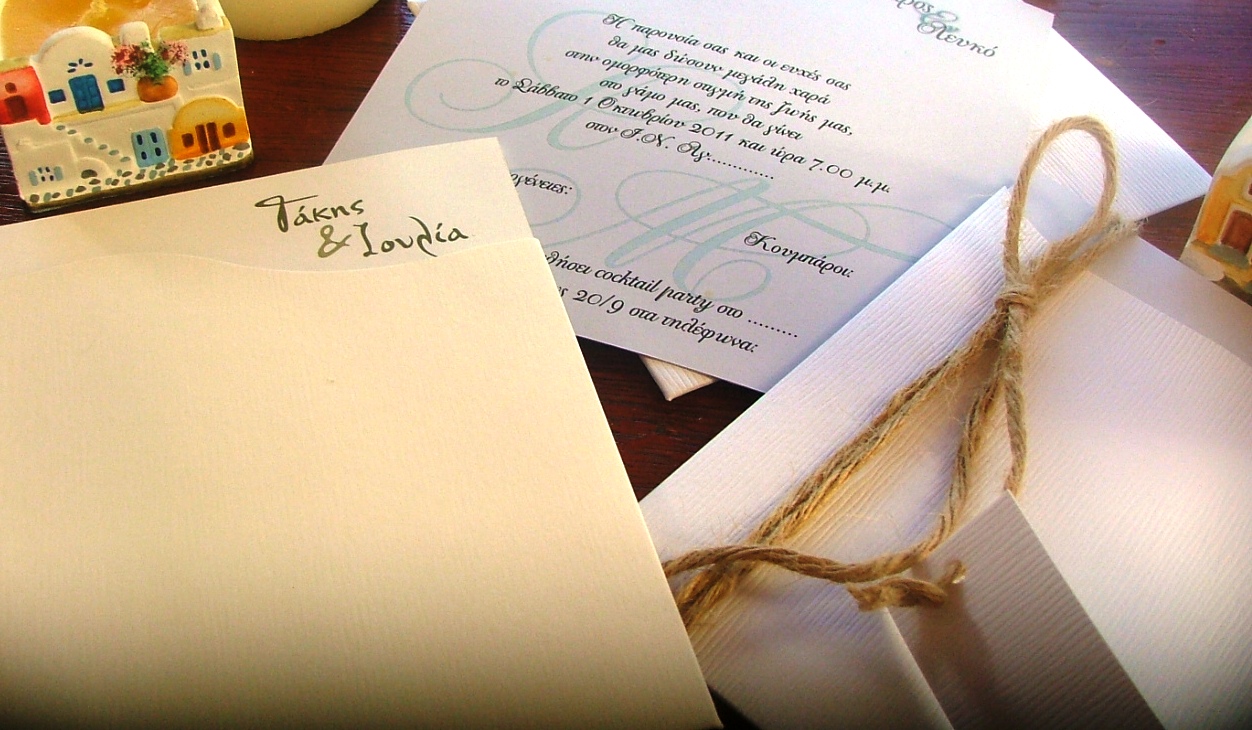 Λευκό
Η παρουσία σας και οι ευχές σας
θα μας δώσουν μεγάλη χαρά
στην ομορφότερη στιγμή της ζωής μας,
στο γάμο μας, που θα γίνει
το Σάββατο 1 Οκτωβρίου 2011 και ώρα 7.00 μ.μ.
στον Ι.Ν. Αγ............
Κουμπάροι:
cocktail party στο .........
20/9 στα τηλέφωνα:
Τάκης
& Ιουλία